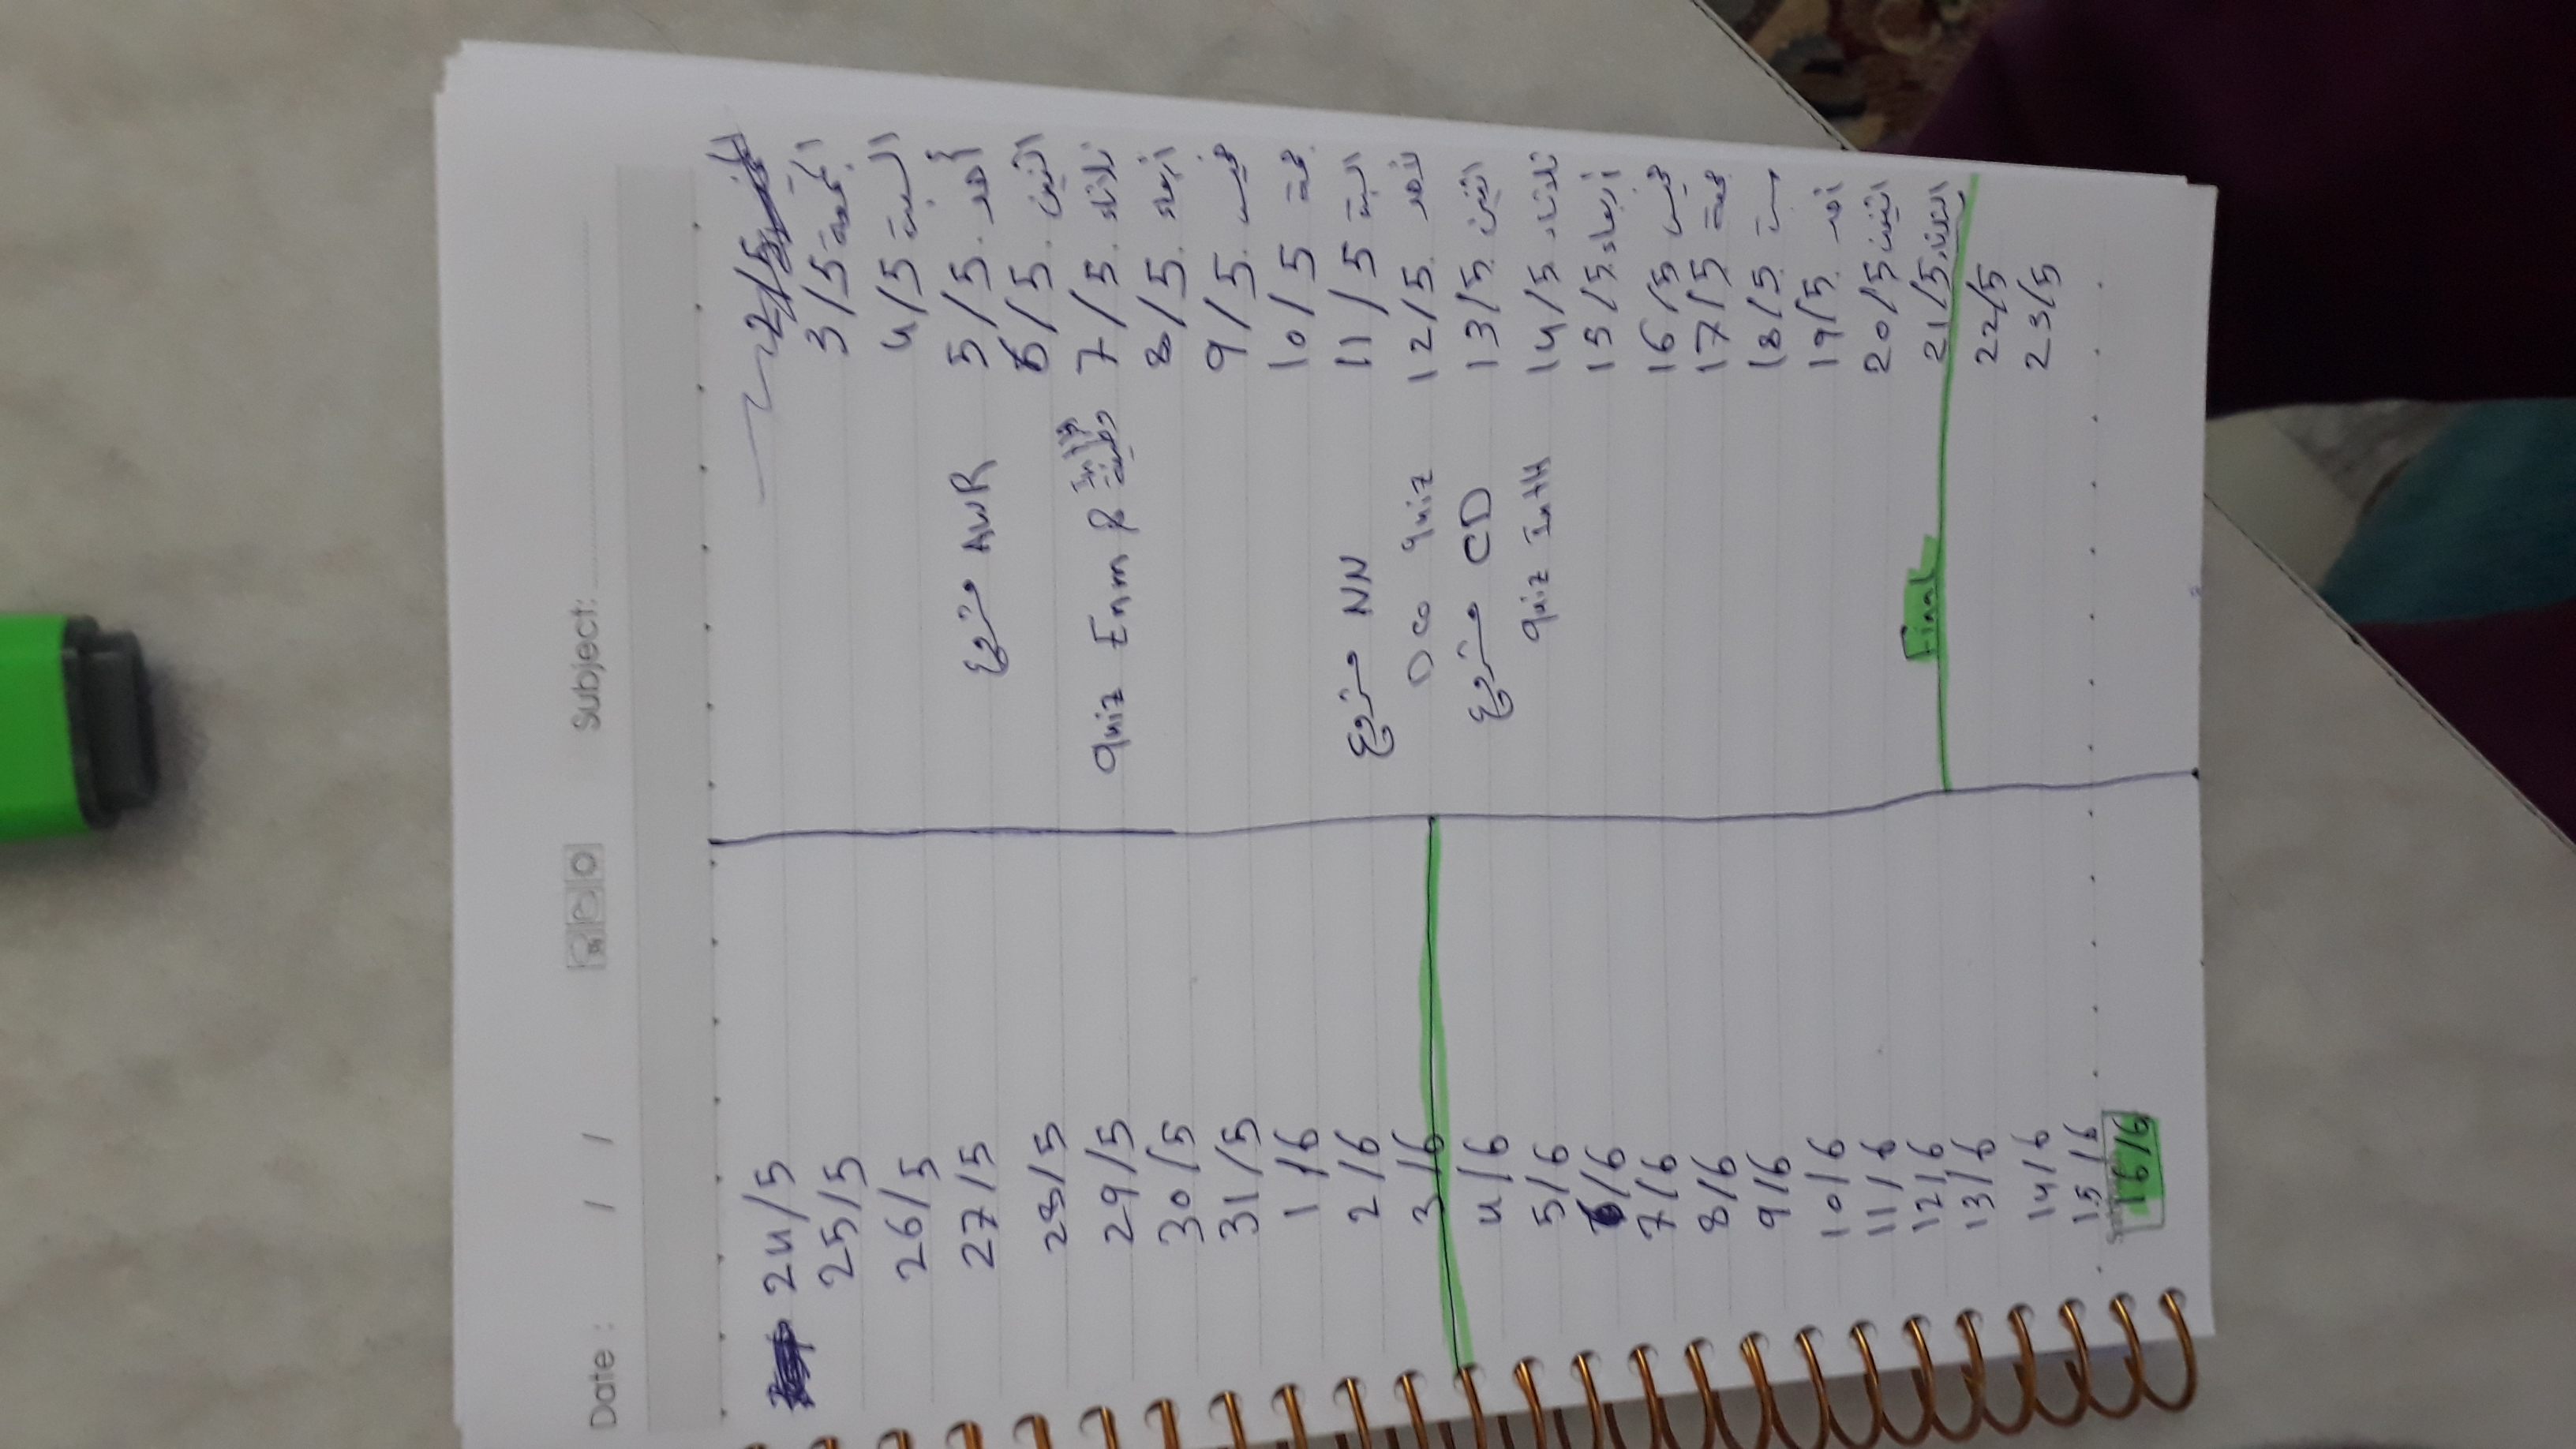 Date : / /
Subject:
الخميس 2/5
الجمعة 3/5
السبة 4/5
أحد 5/5 مشروع AWR
اثنين 6/5
ثلاثاء 7/5 وظيفة & Quiz Enm
أربعاء 8/5
خميس 9/5
جمعة 10/5
السبة 11/5 مشروع NN
لأحد 12/5 Dco quiz
اثنين 13/5 مشروع CD
ثلاثاء 14/5 quiz IntH
أربعاء 15/5
خميس 16/5
جمعة 17/5
سبة 18/5
أحد 19/5
اثنين 20/5
الثلاثاء 21/5 Final
22/5
23/5
24/5
25/5
26/5
27/5
28/5
29/5
30/5
31/5
1/6
2/6
3/6
4/6
5/6
6/6
7/6
8/6
9/6
10/6
11/6
12/6
13/6
14/6
15/6
16/6